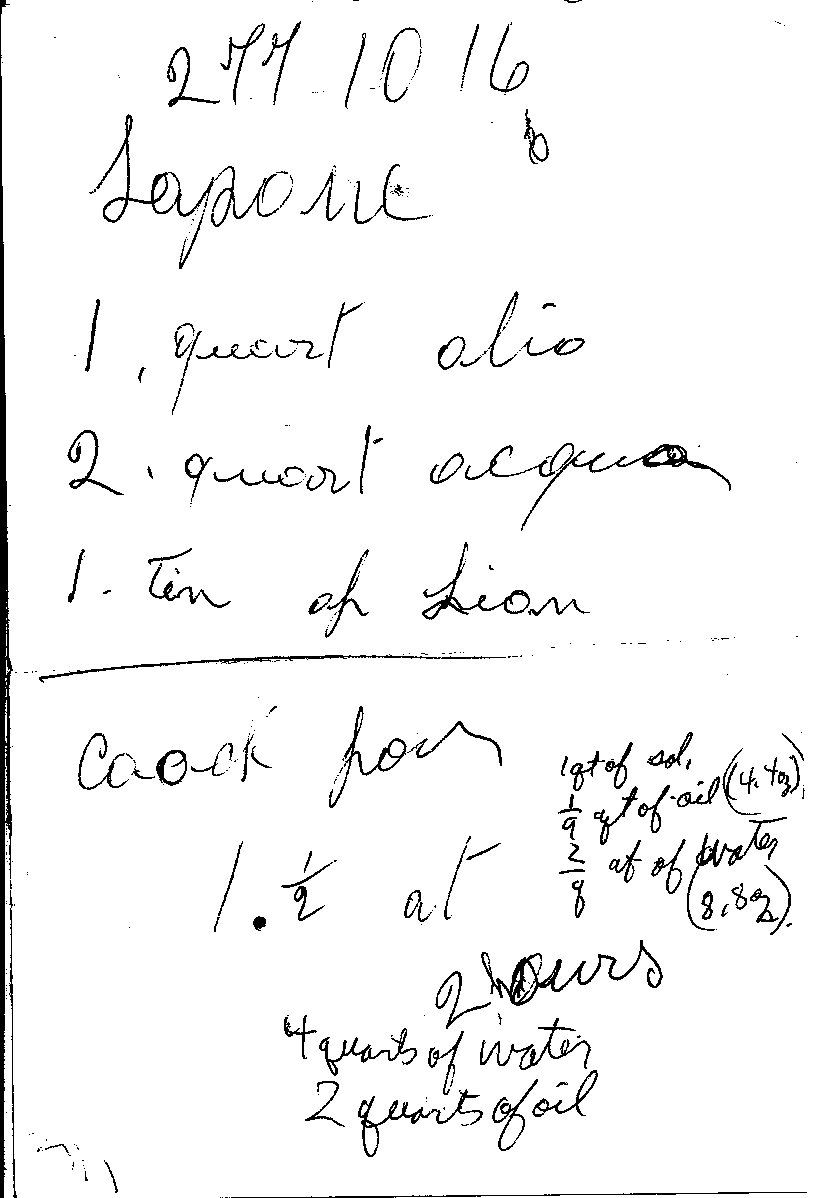 277-1016
Sapone
1. quart olio
2. quart acqua
1. Tin of Lion
Coock for
1. 1/2 at
2 hours
1 qt of sol.
1/9 qt of oil (4.4oz),
2/9 qt of water
(8.8oz).
4 quarts of water
2 quarts of oil